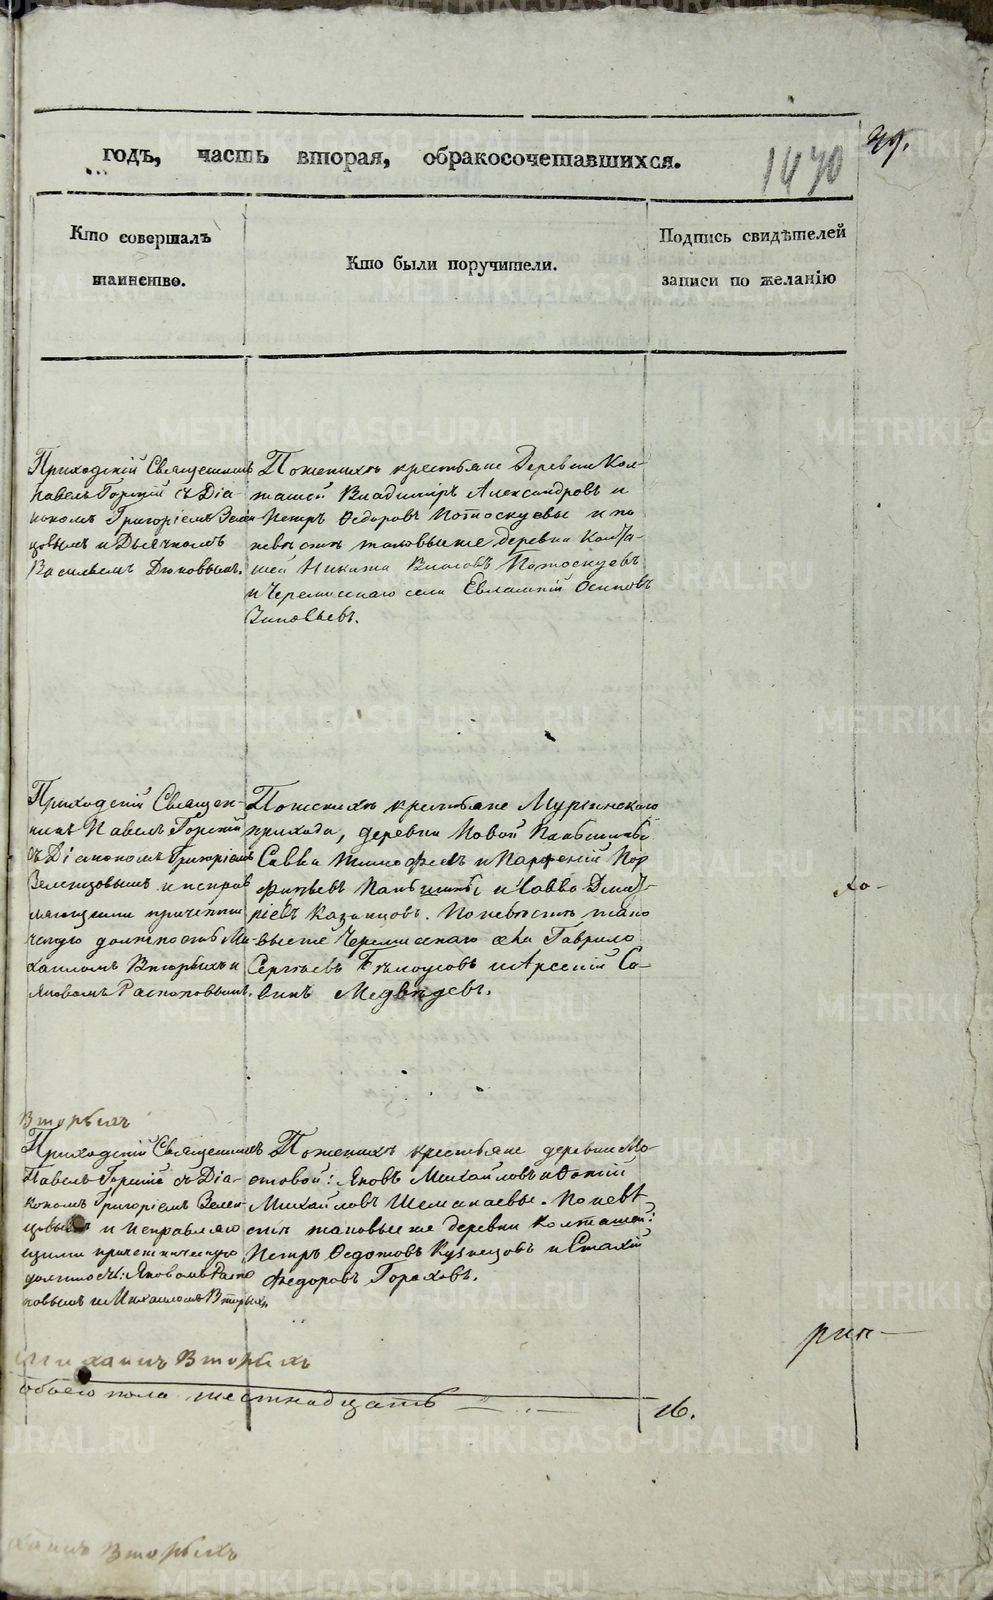 годъ, часть вторая, обракосочетавшихся.
1470
Кто совершалъ
таинство.
Кто были поручители.
Подпись свидѣтелей
записи по желанію
Приходскій Священникъ
Павелъ Горскій съ Діа-
кономъ Григоріемъ Зелен-
цовымъ и Дьячкомъ
Васильемъ Дюковымъ.
По женихѣ крестьяне Деревни Кол-
ташей Владимiръ Александровъ и
Петръ Ѳедоровъ Потоскуевы и по
невѣстѣ таковые же деревни Колта-
шей Никита Власовъ Потоскуевъ
и Черемисскаго села Евлампій Осиповъ
Зиновьевъ.
Приходскій Священ-
никъ Павелъ Горскій
съ Діакономъ Григоріемъ
Зеленцовымъ и исправ
ляющими причетни
ческую должность Ми-
хаиломъ Вторыхъ и
Яковомъ Распоповымъ.
По женихѣ крестьяне Мурзинского
прихода, деревни Новой
Савва Тимофеевъ и Парфеній Пор
фирьевъ и Савва Дмит-
ріевъ Казанцовъ. По невѣстѣ тако
вые же Черемисскаго села Гаврило
Сергѣевъ Бѣлоусовъ и Арсеній Са-
винъ Медвѣдевъ.
Вторыхъ
Приходскій Священникъ
Павелъ Горскій съ Діа-
кономъ Григоріемъ Зелен-
цовымъ и исправляю
щими причетническую
должность: Яковомъ Распо
повымъ и Михаиломъ Вторыхъ
По женихѣ крестьяне деревни Мо-
стовой: Яковъ Михайловъ и
Михайловъ Шеманаевы. По невѣ
стѣ таковые же деревни Колташей:
Петръ Ѳедотовъ Кузнецовъ и Стахій
Федоровъ Гороховъ.
Михаилъ Вторыхъ
обоего пола шестнадцать
16.
хаилъ Вторыхъ
хо-
рит-
METRIKI.GASO-URAL.RU